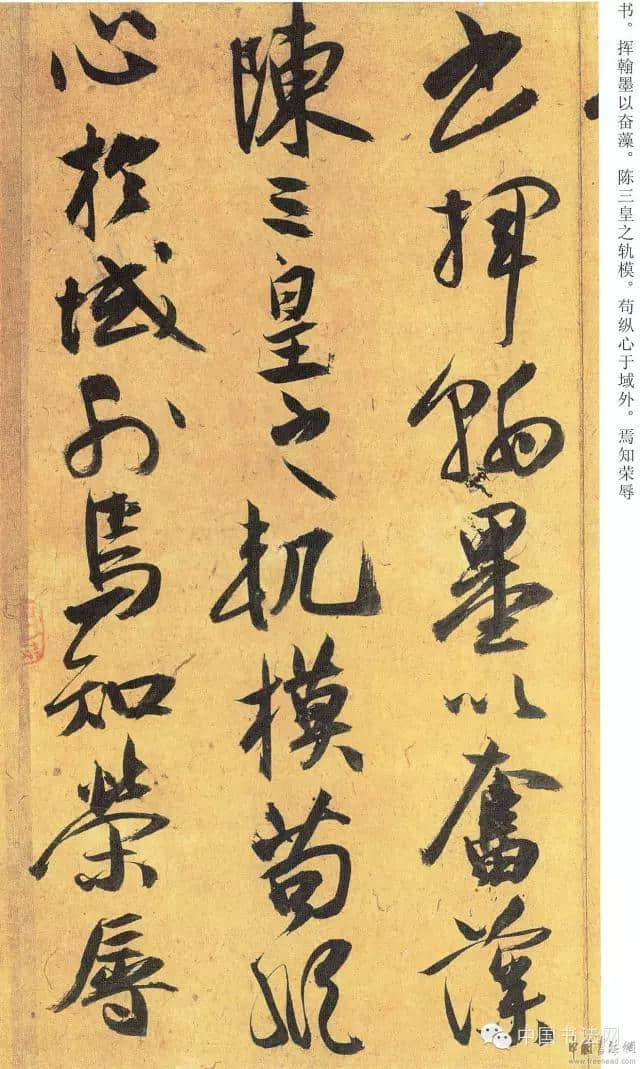 书。挥翰墨以奋藻。陈三皇之轨模。苟纵心于域外。焉知荣辱
书揮翰墨以奮藻
陳三皇之軌模苟縱
心於域外焉知榮辱
中国书法网
www.freehead.com